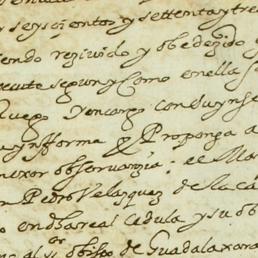 y seysçientos y settenta y tre
endo reziuido y obedezido
ecute segun y Como en ella se
Ruego y encargo con Su ynse
a ynfforme y Proponga a
mexor obseruanzia: el Ma
n Pedro Velasquez de la ca
o en dha real cedula y su ob
al sor obispo de Guadalaxara